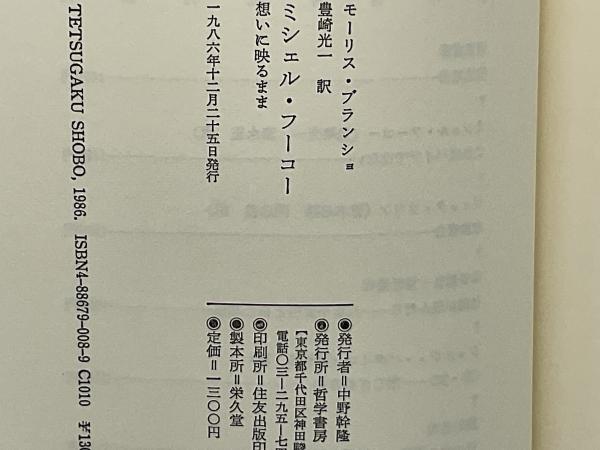 モーリス・ブランショ
豊崎光一 訳
ミシェル・フーコー
想いに映るまま
一九八六年十二月二十五日発行
●発行者＝中野幹隆
●発行所＝哲学書房
【東京都千代田区神田駿
電話〇三―二九五―七四
●印刷所＝住友出版印
●製本所＝栄久堂
●定価＝一三〇〇円
TETSUGAKU SHOBO, 1986. ISBN4-88679-008-9 C1010 ¥130